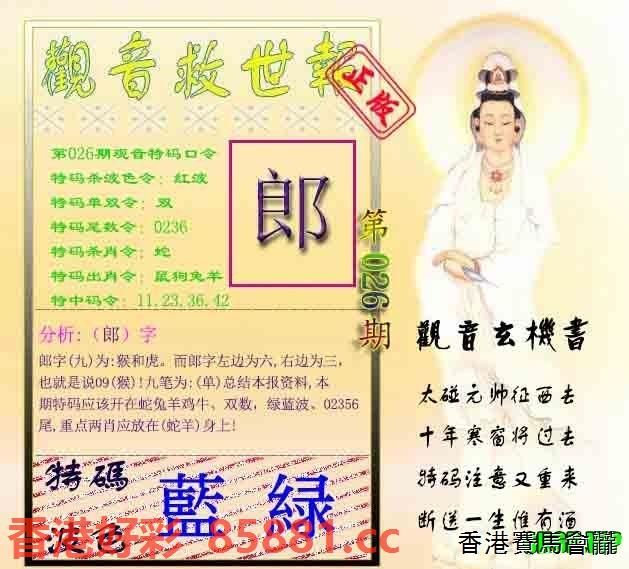 觀音救世報
正版
第026期观音特码口令
特码杀波色令：紅波
特码单双令：双
特码尾数令：0236
特码杀肖令：蛇
特码出肖令：鼠狗兔羊
特中码令：11.23.36.42
郎
第026期
分析:（郎）字
郎字(九)为:猴和虎。而郎字左边为六,右边为三,
也就是说09(猴)!九笔为:(单)总结本报资料,本
期特码应该开在蛇兔羊鸡牛、双数，绿蓝波、02356
尾,重点两肖应放在(蛇羊)身上!
特碼
波色
藍 緑
觀音玄機書
太碰元帅征西去
十年寒窗将过去
特码注意又重来
断送一生惟有酒
香港好彩-85881.cc
香港賽馬會